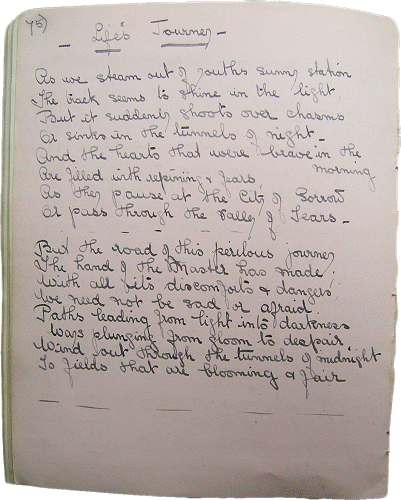 75)
- Life's Journey -
As we steam out of youth's sunny station
The track seems to shine in the light,
But it suddenly shoots over chasms
Or sinks in the tunnels of night -
And the hearts that were brave in the
morning
Are filled with repining & fears,
As they pause at the City of Sorrow
Or pass through the Valley of Tears -
But the road of this perilous journey
The hand of the Master has made;
With all its discomforts & dangers
We need not be sad or afraid.
Paths leading from light into darkness
Ways plunging from gloom to despair
Wind out through the tunnels of midnight
To fields that are blooming & fair